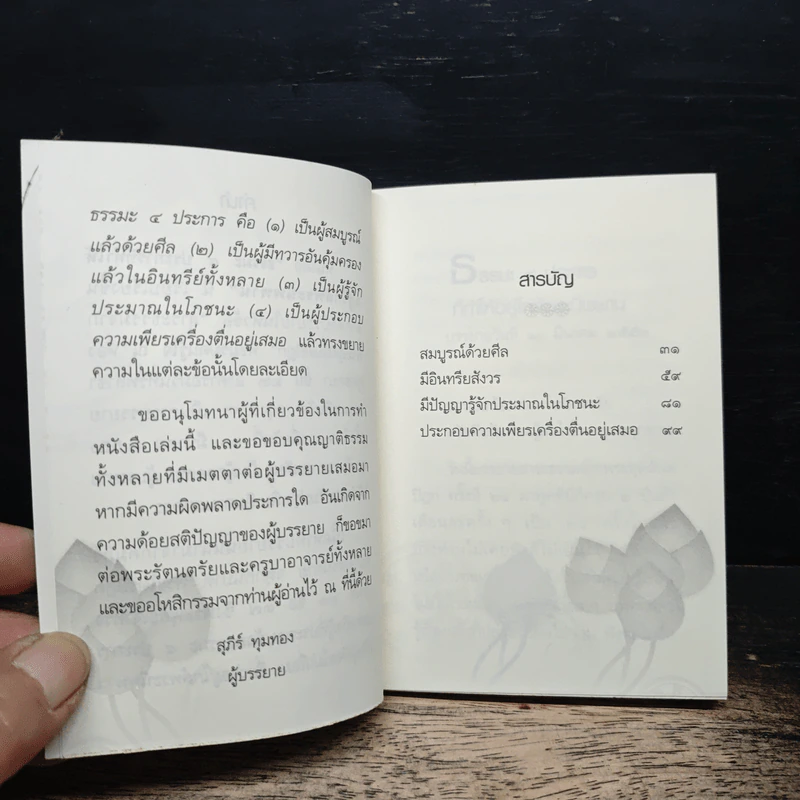 ธรรมะ ๔ ประการ คือ (๑) เป็นผู้สมบูรณ์
แล้วด้วยศีล (๒) เป็นผู้มีทวารอันคุ้มครอง
แล้วในอินทรีย์ทั้งหลาย (๓) เป็นผู้รู้จัก
ประมาณในโภชนะ (๔) เป็นผู้ประกอบ
ความเพียรเครื่องตื่นอยู่เสมอ แล้วทรงขยาย
ความในแต่ละข้อนั้นโดยละเอียด
ขออนุโมทนาผู้ที่เกี่ยวข้องในการทำ
หนังสือเล่มนี้ และขอขอบคุณญาติธรรม
ทั้งหลายที่มีเมตตาต่อผู้บรรยายเสมอมา
หากมีความผิดพลาดประการใด อันเกิดจาก
ความด้อยสติปัญญาของผู้บรรยาย ก็ขอขมา
ต่อพระรัตนตรัยและครูบาอาจารย์ทั้งหลาย
และขออโหสิกรรมจากท่านผู้อ่านไว้ ณ ที่นี้ด้วย
สุภีร์ ทุมทอง
ผู้บรรยาย
สารบัญ
สมบูรณ์ด้วยศีล ๓๑
มีอินทรียสังวร ๕๙
มีปัญญารู้จักประมาณในโภชนะ ๘๑
ประกอบความเพียรเครื่องตื่นอยู่เสมอ ๙๙